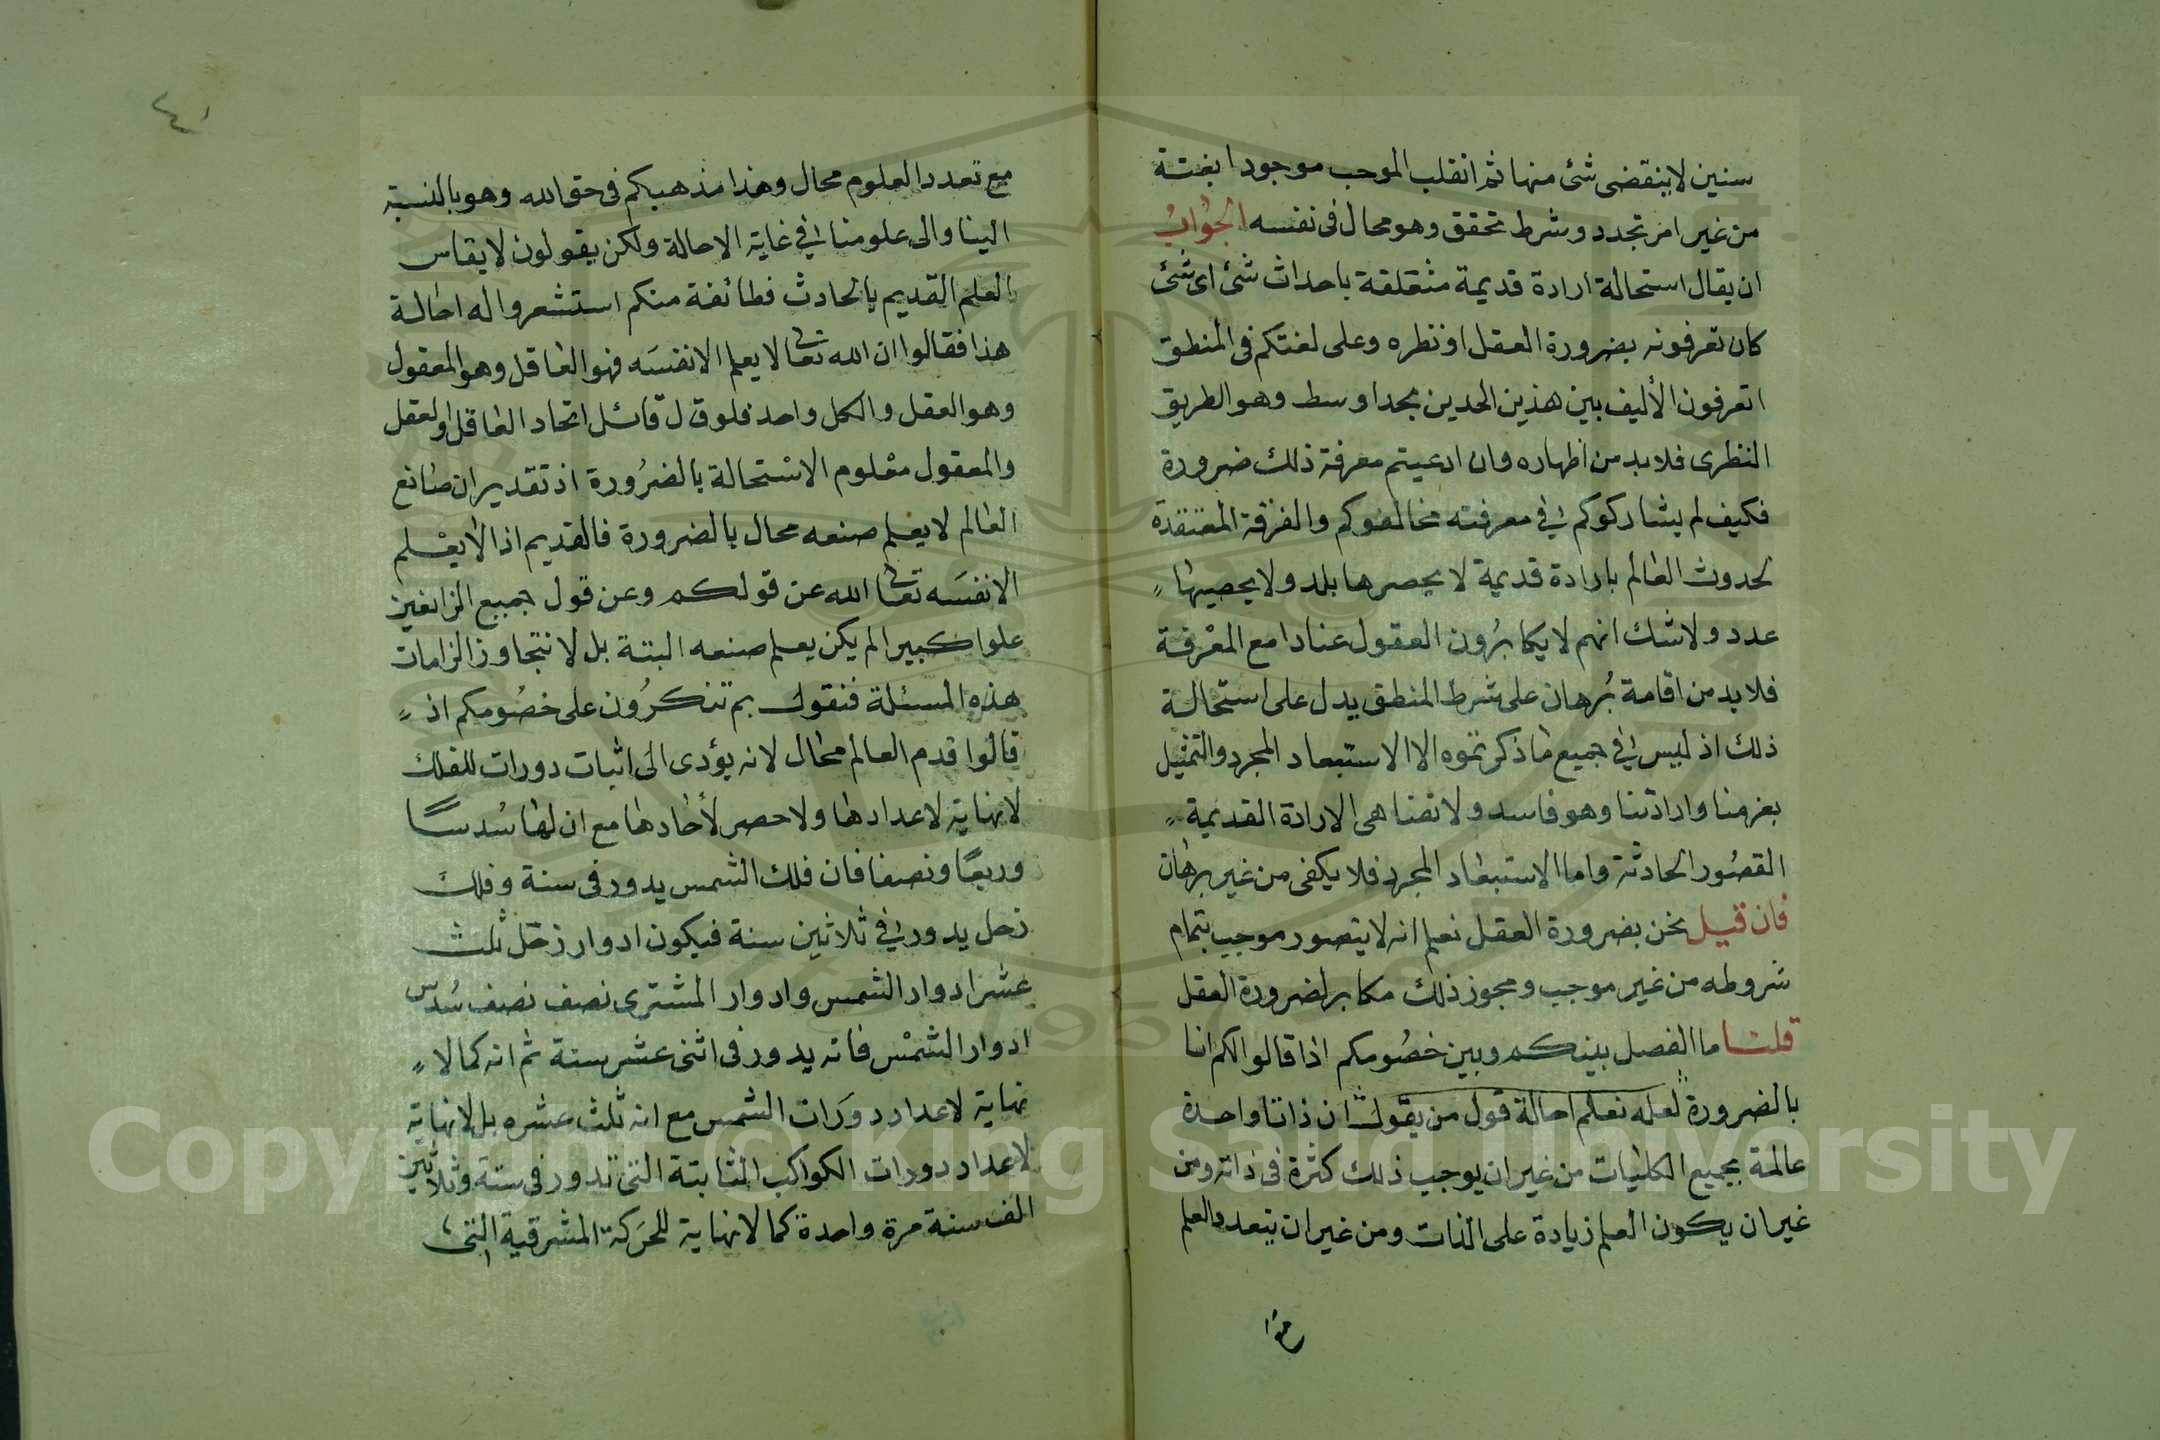 سنين لا ينقضى شئ منها ثم انقلب الموجب موجودا بغتة
من غير امر تجدد وشرط تحقق وهو محال فى نفسه الجواب
ان يقال استحالة ارادة قديمة متعلقة باحداث شئ اى شئ
كان تعرفونه بضرورة العقل او نظره وعلى لغتكم فى المنطق
اتعرفون الأليف بين هذين الحدين بحد اوسط وهو الطريق
النظرى فلا بد من اظهاره وان ادعيتم معرفة ذلك ضرورة
فكيف لم يشارككم فى معرفته مخالفوكم والفرقة المعتقدة
لحدوث العالم بارادة قديمة لا يحصرها بلد ولا يحصيها
عدد ولا شك انهم لا يكابرون العقول عنادا مع المعرفة
فلا بد من اقامة برهان على شرط المنطق يدل على استحالة
ذلك اذ ليس فى جميع ما ذكرتموه الا الاستبعاد المجرد والتمثيل
بعزمنا وارادتنا وهو فاسد ولا تضاهى الارادة القديمة
القصور الحادثة واما الاستبعاد المجرد فلا يكفى من غير برهان
فان قيل نحن بضرورة العقل نعلم انه لا يتصور موجب بتمام
شروطه من غير موجب ومجوز ذلك مكابر لضرورة العقل
قلنا ما الفصل بينكم وبين خصومكم اذا قالوا لكم انا
بالضرورة لعله نعلم احالة قول من يقول ان ذاتا واحدة
عالمة بجميع الكليات من غير ان يوجب ذلك كثرة فى ذاته ومن
غير ان يكون العلم زيادة على الذات ومن غير ان يتعدد العلم
٤١
مع تعدد العلوم محال وهذا مذهبكم فى حق الله وهو بالنسبة
الينا والى علومنا فى غاية الاحالة ولكن يقولون لا يقاس
العلم القديم بالحادث فطائفة منكم استشعروا له احالة
هذا فقالوا ان الله تعالى لا يعلم الا نفسه فهو العاقل وهو المعقول
وهو العقل والكل واحد فلو قال قائل اتحاد العاقل والعقل
والمعقول معلوم الاستحالة بالضرورة اذ تقدير ان صانع
العالم لا يعلم صنعه محال بالضرورة فالقديم اذا لا يعلم
الا نفسه تعالى الله عن قولكم وعن قول جميع الزائغين
علوا كبيرا لم يكن يعلم صنعه البتة بل لا نتجاوز الزامات
هذه المسئلة فنقول بم تنكرون على خصومكم اذ
قالوا قدم العالم محال لانه يؤدى الى اثبات دورات للفلك
لا نهاية لاعدادها ولا حصر لأحادها مع ان لها سدسا
وربعا ونصفا فان فلك الشمس يدور فى سنة وفلك
زحل يدور فى ثلاثين سنة فيكون ادوار زحل ثلث
عشر ادوار الشمس وادوار المشترى نصف نصف سدس
ادوار الشمس فانه يدور فى اثنى عشر سنة ثم انه كما لا
نهاية لاعداد دورات الشمس مع انه ثلث عشره بل لا نهاية
لاعداد دورات الكواكب الثابتة التى تدور فى ستة وثلاثين
الف سنة مرة واحدة كما لا نهاية للحركة المشرقية التى
Copyright © King Saud University
1957